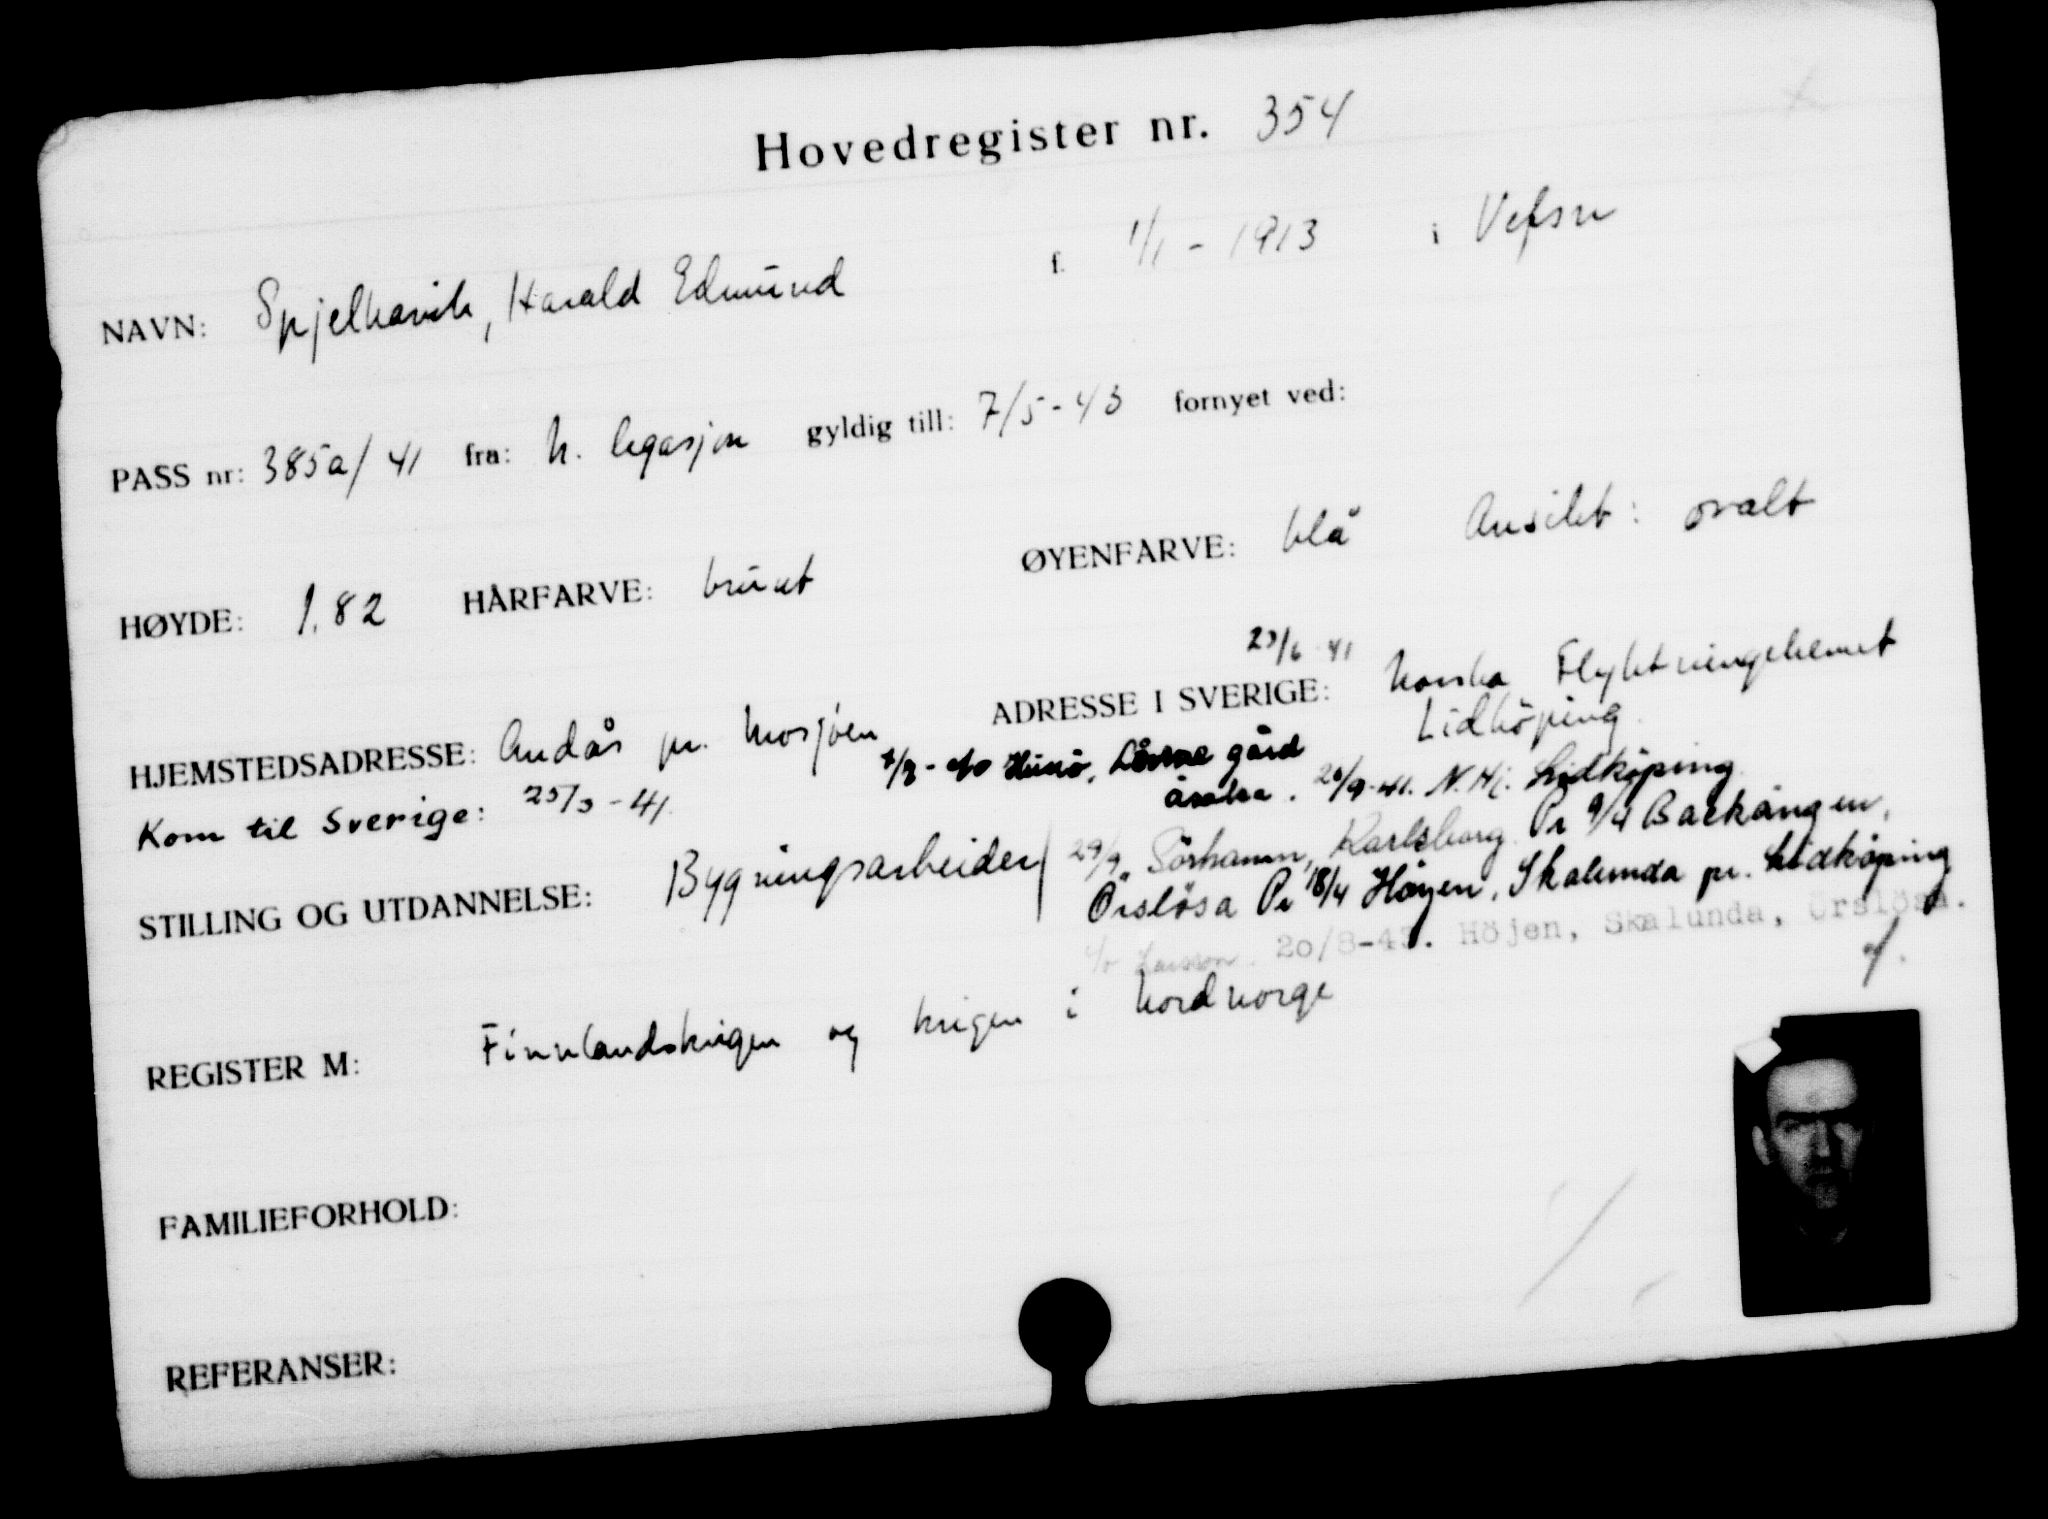 Hovedregister nr. 354
NAVN: Spjelkavik, Harald Edmund f. 1/1 - 1913 i Vefsn
PASS nr: 385a/41 fra: N. legasjon gyldig till: 7/5-43 fornyet ved:
HØYDE: 1.82 HÅRFARVE: brunt ØYENFARVE: blå Ansikt: ovalt
HJEMSTEDSADRESSE: Andås pr. Mosjøen ADRESSE I SVERIGE: Norska Flyktningehemet
Lidköping
gård
20/9-41. N. Hj. Lidköping
Kom til Sverige: 25/3-41
STILLING OG UTDANNELSE: Bygningsarbeider
29/9 Sörhamn, Karlsborg. Pr 9/4 Backängen,
Örslösa Pr 18/4 Höyen, Skalunda pr. Lidköping
c/o 20/8-43. Höjen, Skalunda, Örslösa.
REGISTER M: Finnlandskrigen og krigen i Nordnorge
FAMILIEFORHOLD:
REFERANSER: